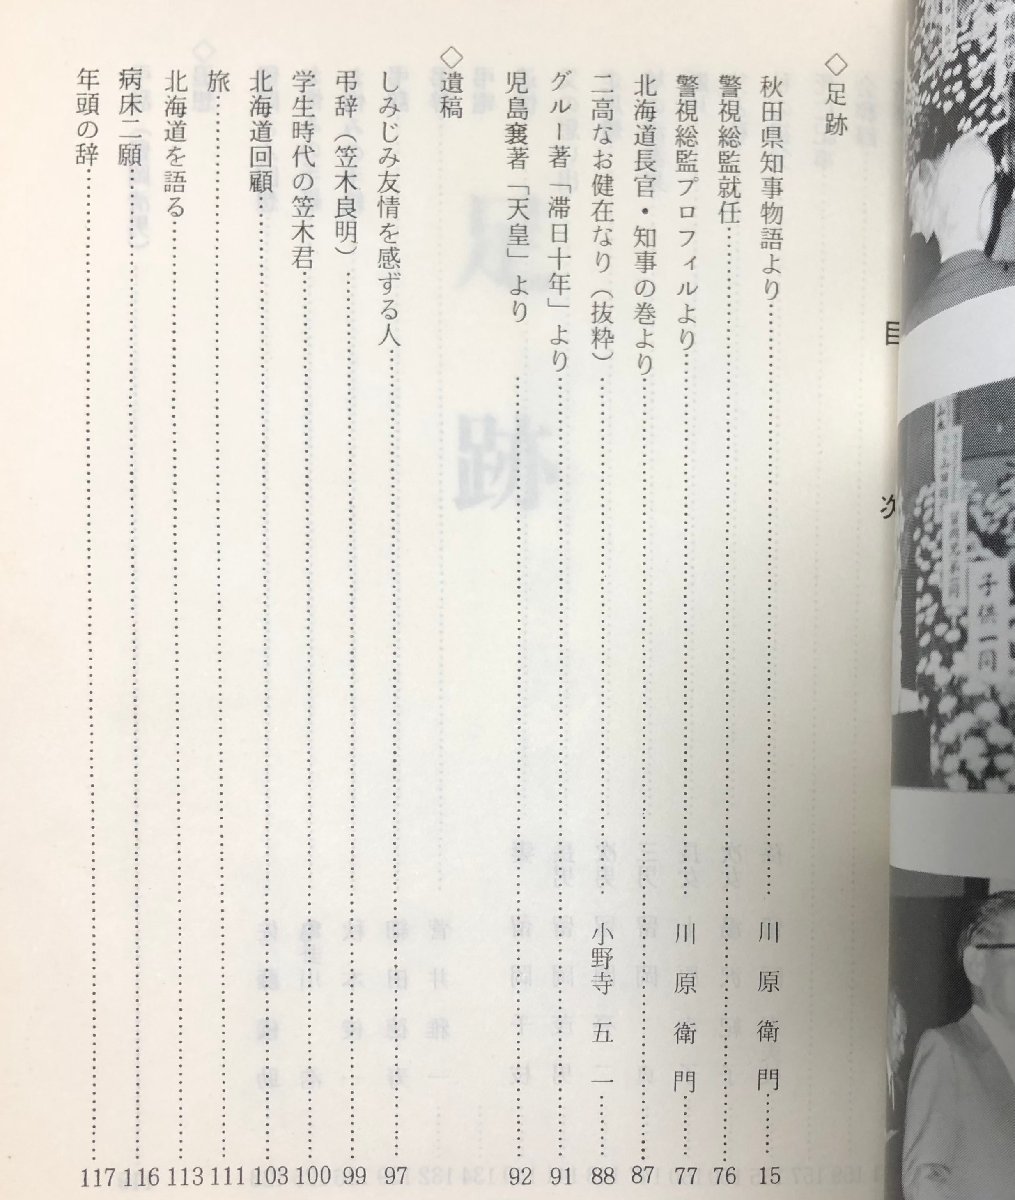 目次
◇足跡
秋田県知事物語より……川原衛門……15
警視総監就任……76
警視総監プロフィルより……川原衛門……77
北海道長官・知事の巻より……87
二高なお健在なり(抜粋)……小野寺五一……88
グルー著「滞日十年」より……91
児島襄著「天皇」より……92
◇遺稿
しみじみ友情を感ずる人……97
弔辞(笠木良明)……99
学生時代の笠木君……100
北海道回顧……103
旅……111
北海道を語る……113
病床二願……116
年頭の辞……117
足跡
子供一同